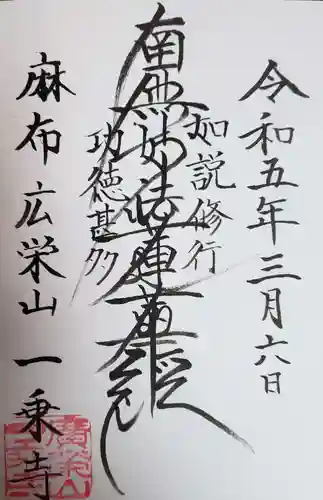 令和五年三月六日
如説修行
南無妙法蓮華経
功徳甚多
麻布広栄山一乗寺